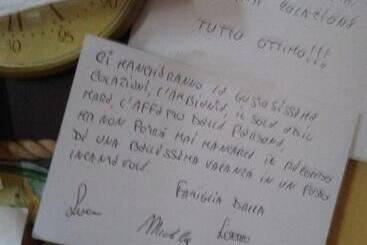 COLAZIONI
TUTTO OTTIMO!!!
CI MANCHERANNO LE GUSTOSISSIME
COLAZIONI, L'AMBIENTE, IL SOLE
MARE, L'AFFETTO DELLE PERSONE,
MA NON POTRÀ MAI MANCARCI IL RICORDO
DI UNA BELLISSIMA VACANZA IN UN POSTO
INCANTEVOLE.
FAMIGLIA
30